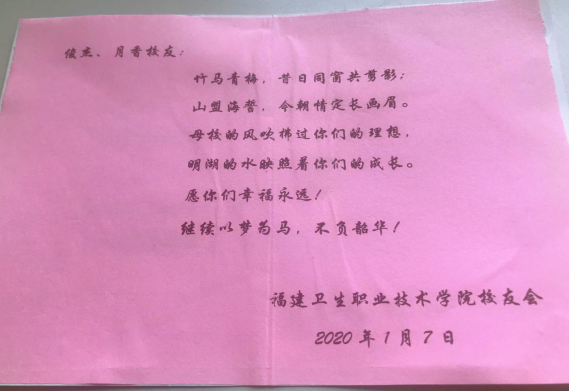 俊杰、月香校友：
竹马青梅，昔日同窗共剪影；
山盟海誓，今朝情定长画眉。
母校的风吹拂过你们的理想，
明湖的水映照着你们的成长。
愿你们幸福永远！
继续以梦为马，不负韶华！
福建卫生职业技术学院校友会
2020年1月7日